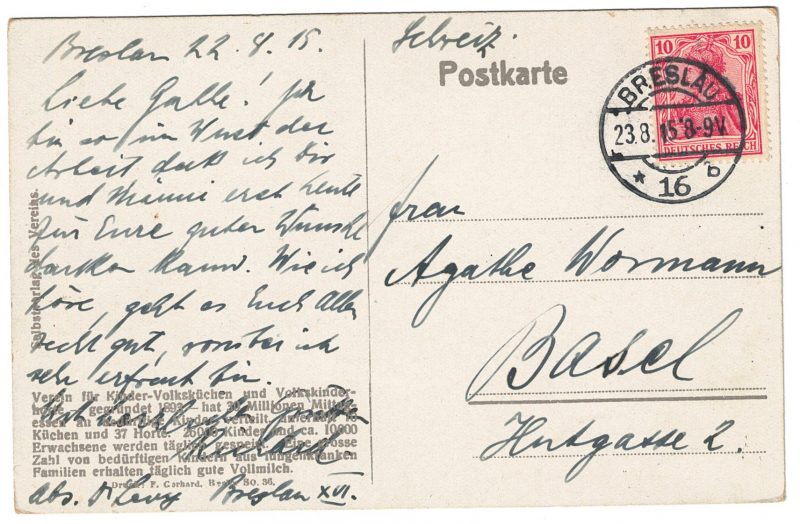 Breslau 22.8.15.
Liebe Gathe! Ich
bin so im Wust der
Arbeit daß ich Dir
und Männe erst heute
für Eure guten Wünsche
danken kann. Wie ich
höre, geht es Euch Allen
recht gut, worüber ich
sehr erfreut bin.
abs. Dr Levy Breslau XVI.
Selbstverlag des Vereins.
Verein für Kinder-Volksküchen und Volkskinder-
gegründet 1893, hat
Küchen und 37 Horte. 26000 Kinder und ca. 10000
Erwachsene werden täglich gespeist. Eine grosse
Zahl von bedürftigen Kindern aus lungenkranken
Familien erhalten täglich gute Vollmilch.
Druck: F. Gerhard, SO. 36.
Schweiz.
Postkarte
10 10
DEUTSCHES REICH
BRESLAU
23.8.15.8-9V.
* 16 b
Frau
Agathe Wormann
Basel
Hutgasse 2.